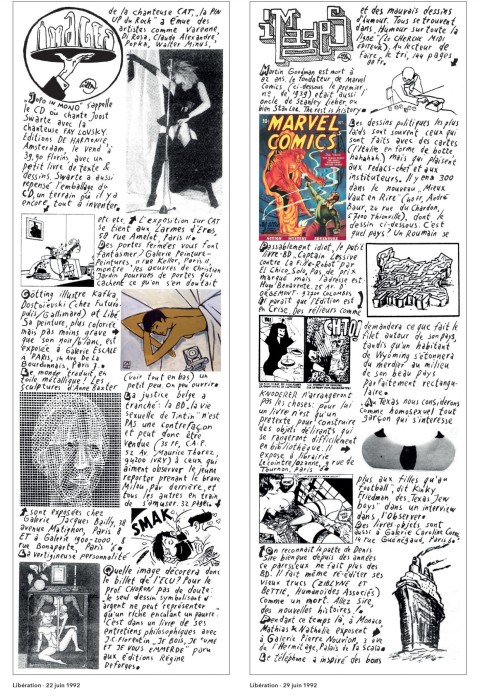 IMAGES
de la chanteuse CAT, la PIN
UP du Rock" a ému des
artistes comme Varenne,
Di Rosa, Claude Alexandre,
Popko, Walter Minus,
INFO IN MONO s'appelle
le CD où chante Joost
Swarte avec la
chanteuse FAY LOVSKY.
Editions DE HARMONIE,
Amsterdam, le vend à
39,90 florins, avec un
petit livre de texte &
dessins. Swarte a aussi
repensé l'emballage du
CD, un terrain où il y a
encore tout à inventer.
etc etc. L'exposition sur CAT
se tient aux Larmes d'Eros,
58 rue Amelot, Paris 11.
Des portes fermées vous font
fantasmer? Galerie Peinture-
Peintures, 11 rue Keller, Paris 11
montre les œuvres de Christian
Jardin pourvues de portes qui
cachent ce qu'on s'en doutait
Götting illustre Kafka,
Dostoïevski (chez Futuro-
polis/Gallimard) et Libé
Sa peinture, plus colorée
mais pas moins grave
que son noir/blanc, est
exposée à Galerie ESCALE
A PARIS, 14 Ave De La
Bourdonnais, Paris 7.
Un monde produit en
toile métallique! Les
sculptures d'Anne Baxter
(voir tout en bas) un
petit peu. On peu ouvrir
La justice belge a
tranché: la BD, la vie
sexuelle de Tintin" n'est
PAS une contrefaçon
et peut donc être
vendue (35 FF, C.A.P.
52 Av. Maurice Thorez,
94200 IVRY) à ceux qui
aiment observer le jeune
reporter prenant le brave
Milou, par derrière, et
tous les autres en train
de s'amuser. 32 pages
sont exposées chez
Galerie Jacques Bailly, 38
avenue Matignon, Paris 8
ET à Galerie 1900-2000, 8
rue Bonaparte, Paris 6
La vertigineuse personnalité
SMAK
Quelle image décorera donc
le billet de l'ECU? Pour le
prof CHARON pas de doute:
le seul dessin symbolisant
argent ne peut représenter
qu'un riche enculant un pauvre.
C'est dans un livre de ses
entretiens philosophiques avec
J.C. Fiorentin, JE BOIS, JE FUME
ET JE VOUS EMMERDE" paru
aux éditions Régine
Deforges.
Libération - 22 juin 1992
IMAGES
et des mauvais dessins
d'humour. Tous se trouvent
dans, Humour sur toute la
ligne" (LE CHERCHE MIDI
EDITEUR). Au lecteur de
faire le tri, 144 pages
Martin Goodman est mort à
82 ans. Le fondateur de Marvel
Comics (ci-dessous le premier
no de 1939) était aussi l'
oncle de Stanley Lieber, ou
bien Stan Lee. The rest is history.
MARVEL
COMICS
ACTION MYSTERY ADVENTURE
Les dessins politiques les plus
laids sont souvent ceux qui
sont faits avec des cartes
(l'Italie en forme de botte
hahahah) mais qui plaisent
aux rédacs-chef et aux
instituteurs. Il y en a 300
dans le nouveau, Mieux
Vaut en Rire" (Hoff, André
Baur, 20 rue du Chardon,
57000 Thionville), dont le
dessin ci-dessous. C'est
quel pays? Un Roumain se
Passablement idiot, le petit
livre-BD, Captain Lessive
contre La Fife-Robot" par
El Chico Solo, Pas de prix
marqué mais l'adresse est
ORGEMONT. 92700 COLOMBES
Il paraît que l'Edition est
en Crise. Des relieurs comme
CHTO!
demandera ce que fait le
filet autour de son pays,
tandis qu'un habitant
de Wyoming s'étonnera
du merdier au milieu
de son beau pays
parfaitement rectangu-
laire.
KVODERER n'arrangeront
pas les choses: pour lui
un livre n'est qu'un
prétexte pour construire
des objets délirants qui
se rangeront difficilement
en bibliothèque. Il
expose à librairie
Lecointre/Ozanne, 9 rue de
Tournon, Paris 6
Au Texas nous considérons
comme homosexuel tout
garçon qui s'intéresse
plus aux filles qu'au
Football", dit Kinky
Friedman des, Texas Jew
boys" dans un interview
dans, l'Observer".
Des livres-objets sont
aussi à Galerie Caroline Corre,
14 rue Guénégaud, Paris 6
On reconnaît la patte de Denis
Sire bien que depuis des années
ce paresseux ne fait plus des
BD. Il fait même re-éditer ses
vieux trucs (ZIBLYNE ET
BETTIE, Humanoïdes Associés)
Comme un mort. Allez Sire,
des nouvelles histoires!
Pendant ce temps là, à Monaco
Mathias & Nathalie exposent
à Galerie Pierre Nouvion, 3 ave
de l'Hermitage, Palais de la Scala
Le téléphone a inspiré des bons
Libération - 29 juin 1992